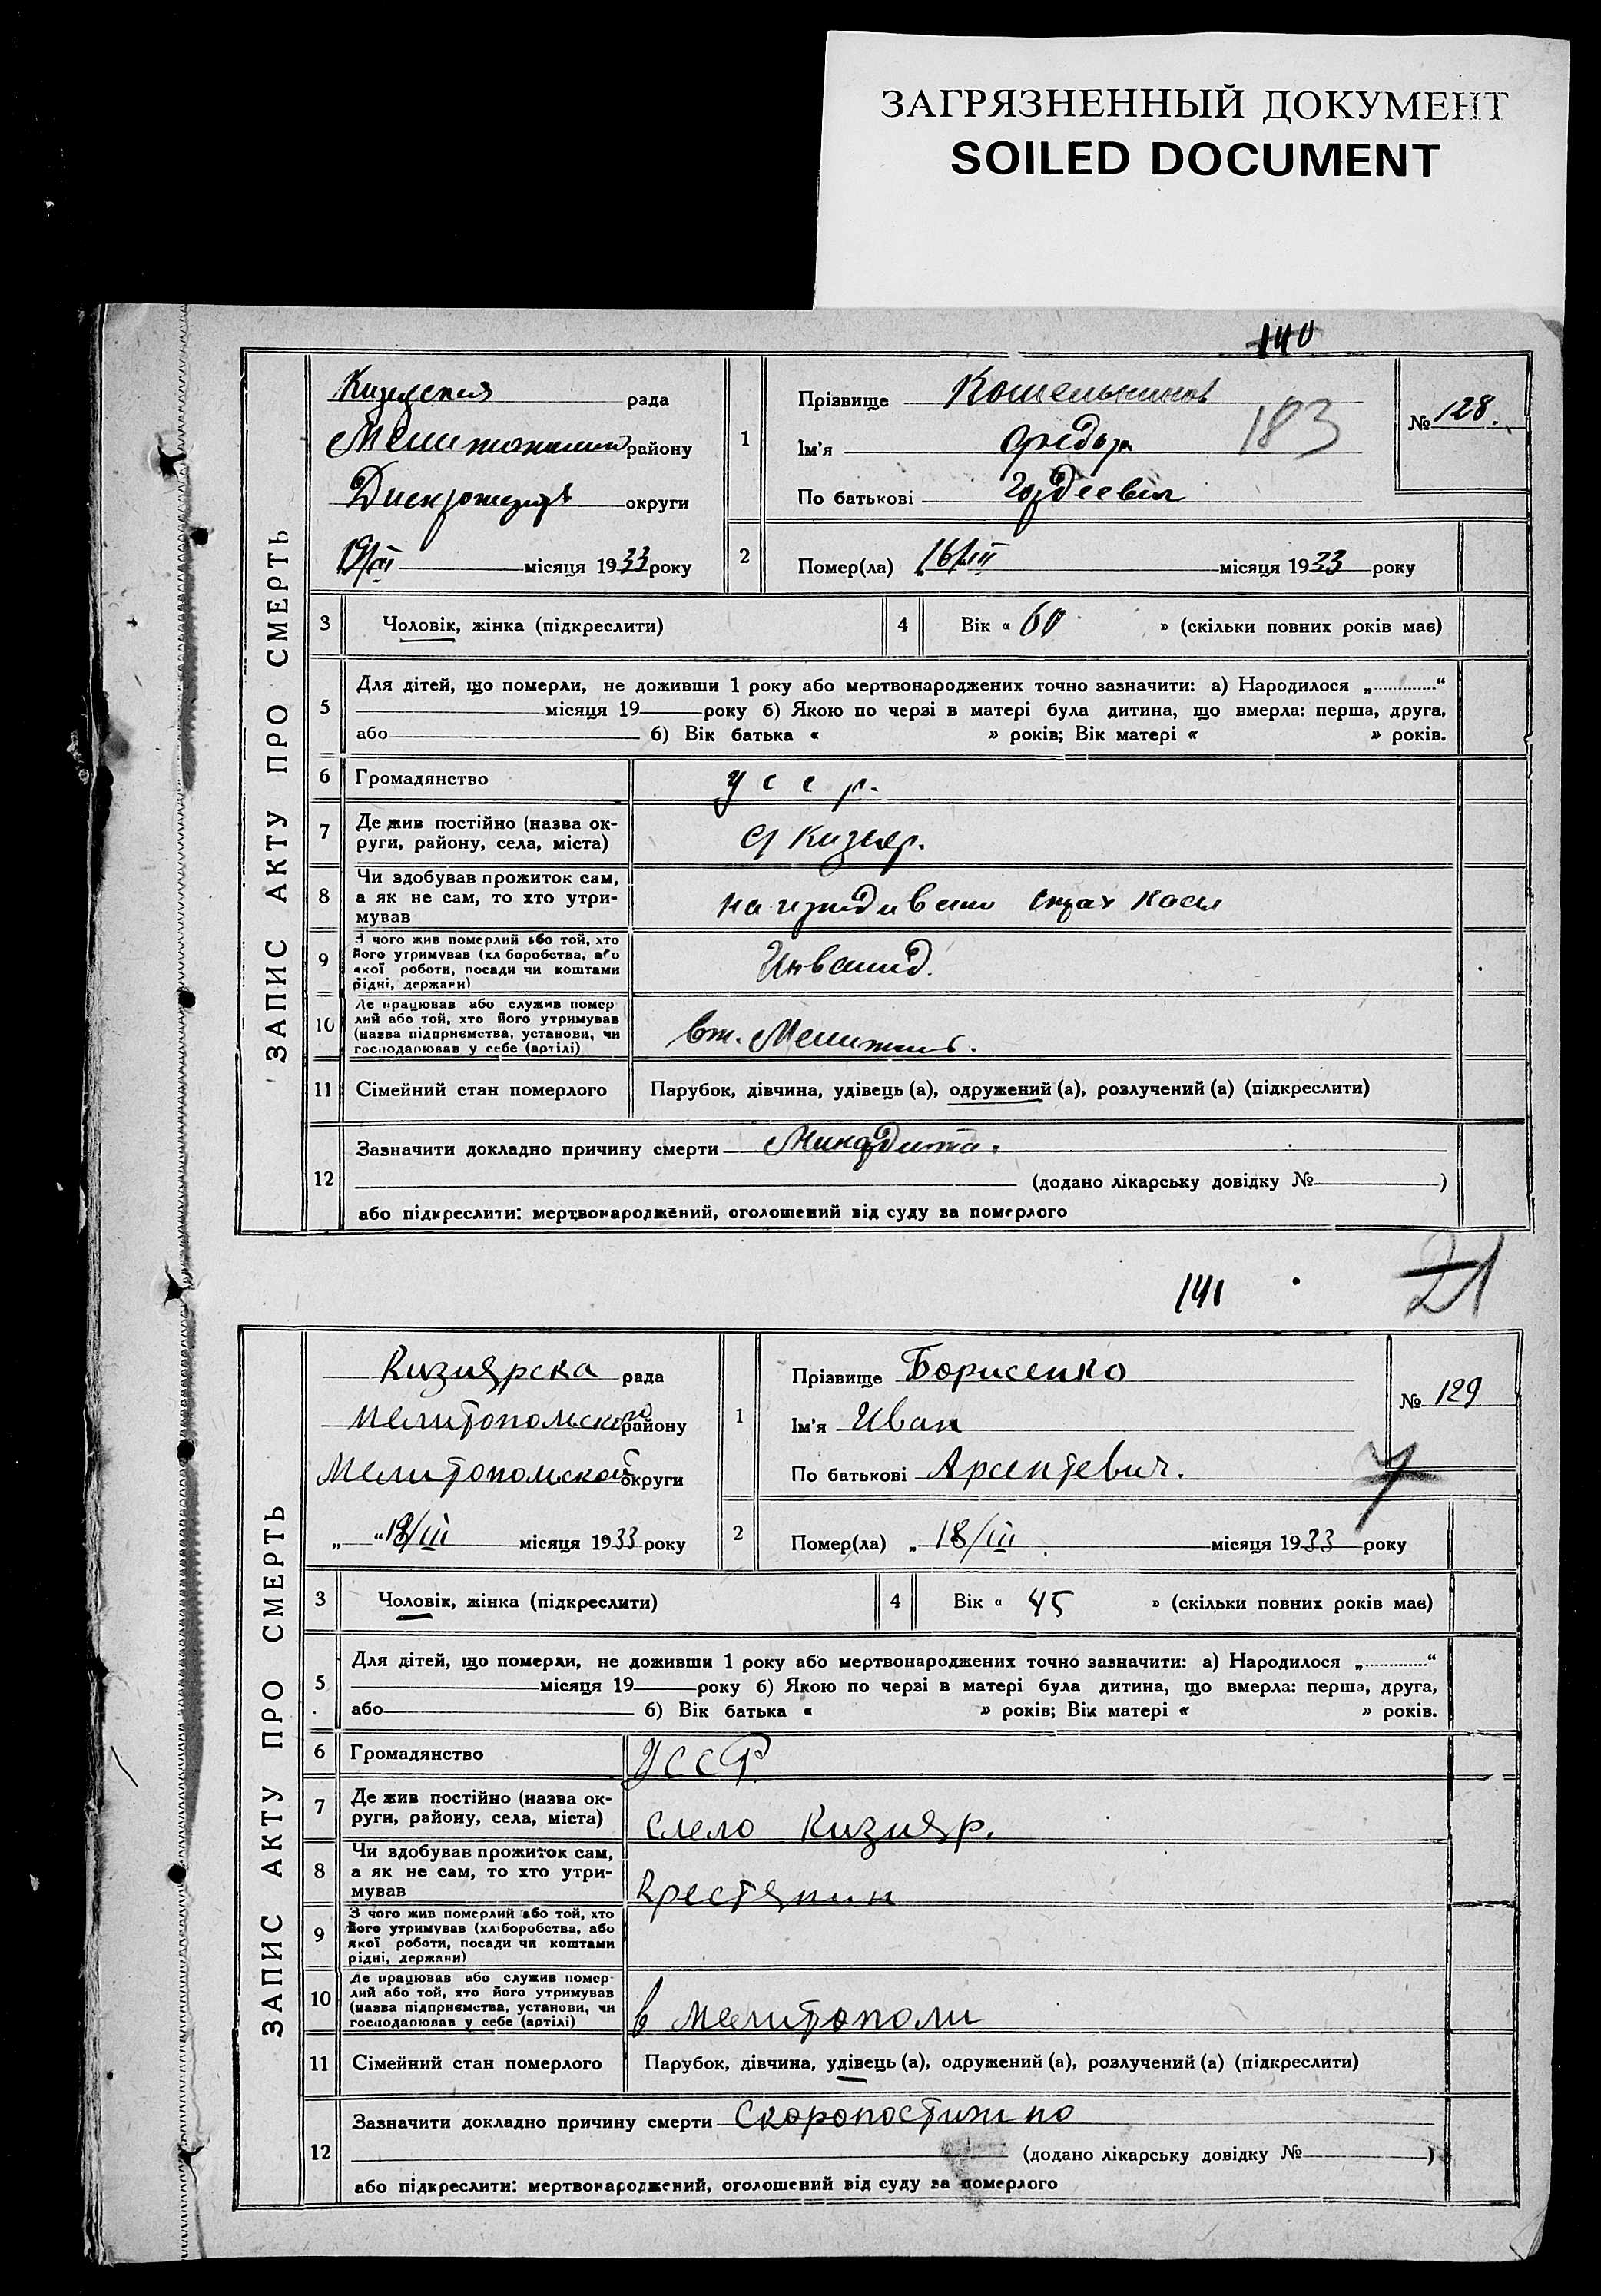 ЗАГРЯЗНЕННЫЙ ДОКУМЕНТ
SOILED DOCUMENT
140
ЗАПИС АКТУ ПРО СМЕРТЬ
рада
району
округи
місяця 1933 року
1
Прізвище Кошельников
183
Ім'я Федор
По батькові Гордеевич
№ 128.
2
Помер(ла) „16/III місяця 1933 року
3
Чоловік, жінка (підкреслити)
4
Вік « 60 » (скільки повних років має)
5
Для дітей, що померли, не доживши 1 року або мертвонароджених точно зазначити: а) Народилося „ “
місяця 19 року б) Якою по черзі в матері була дитина, що вмерла: перша, друга,
або б) Вік батька « » років; Вік матері « » років.
6
Громадянство
У С С Р.
7
Де жив постійно (назва ок-
руги, району, села, міста)
с Кизияр.
8
Чи здобував прожиток сам,
а як не сам, то хто утри-
мував
на страх касы
9
З чого жив померлий або той, хто
його утримував (хліборобства, або
якої роботи, посади чи коштами
рідні, держави)
Инвалид.
10
Де працював або служив помер-
лий або той, хто його утримував
(назва підприємства, установи, чи
господарював у себе (артілі)
11
Сімейний стан померлого
Парубок, дівчина, удівець (а), одружений (а), розлучений (а) (підкреслити)
12
Зазначити докладно причину смерти
(додано лікарську довідку № )
або підкреслити: мертвонароджений, оголошений від суду за померлого
141
21
ЗАПИС АКТУ ПРО СМЕРТЬ
Кизиярска рада
Мелитопольского району
Мелитопольской округи
„ “18/III місяця 1933 року
1
Прізвище Борисенко
Ім'я Иван
По батькові Арсентевич.
№ 129
2
Помер(ла) „ 18/III місяця 1933 року
3
Чоловік, жінка (підкреслити)
4
Вік « 45 » (скільки повних років має)
5
Для дітей, що померли, не доживши 1 року або мертвонароджених точно зазначити: а) Народилося „ “
місяця 19 року б) Якою по черзі в матері була дитина, що вмерла: перша, друга,
або б) Вік батька « » років; Вік матері « » років.
6
Громадянство
УССР.
7
Де жив постійно (назва ок-
руги, району, села, міста)
Село Кизияр.
8
Чи здобував прожиток сам,
а як не сам, то хто утри-
мував
Крестянин
9
З чого жив померлий або той, хто
його утримував (хліборобства, або
якої роботи, посади чи коштами
рідні, держави)
10
Де працював або служив помер-
лий або той, хто його утримував
(назва підприємства, установи, чи
господарював у себе (артілі)
в Мелитополи
11
Сімейний стан померлого
Парубок, дівчина, удівець (а), одружений (а), розлучений (а) (підкреслити)
12
Зазначити докладно причину смерти Скоропостижно
(додано лікарську довідку № )
або підкреслити: мертвонароджений, оголошений від суду за померлого